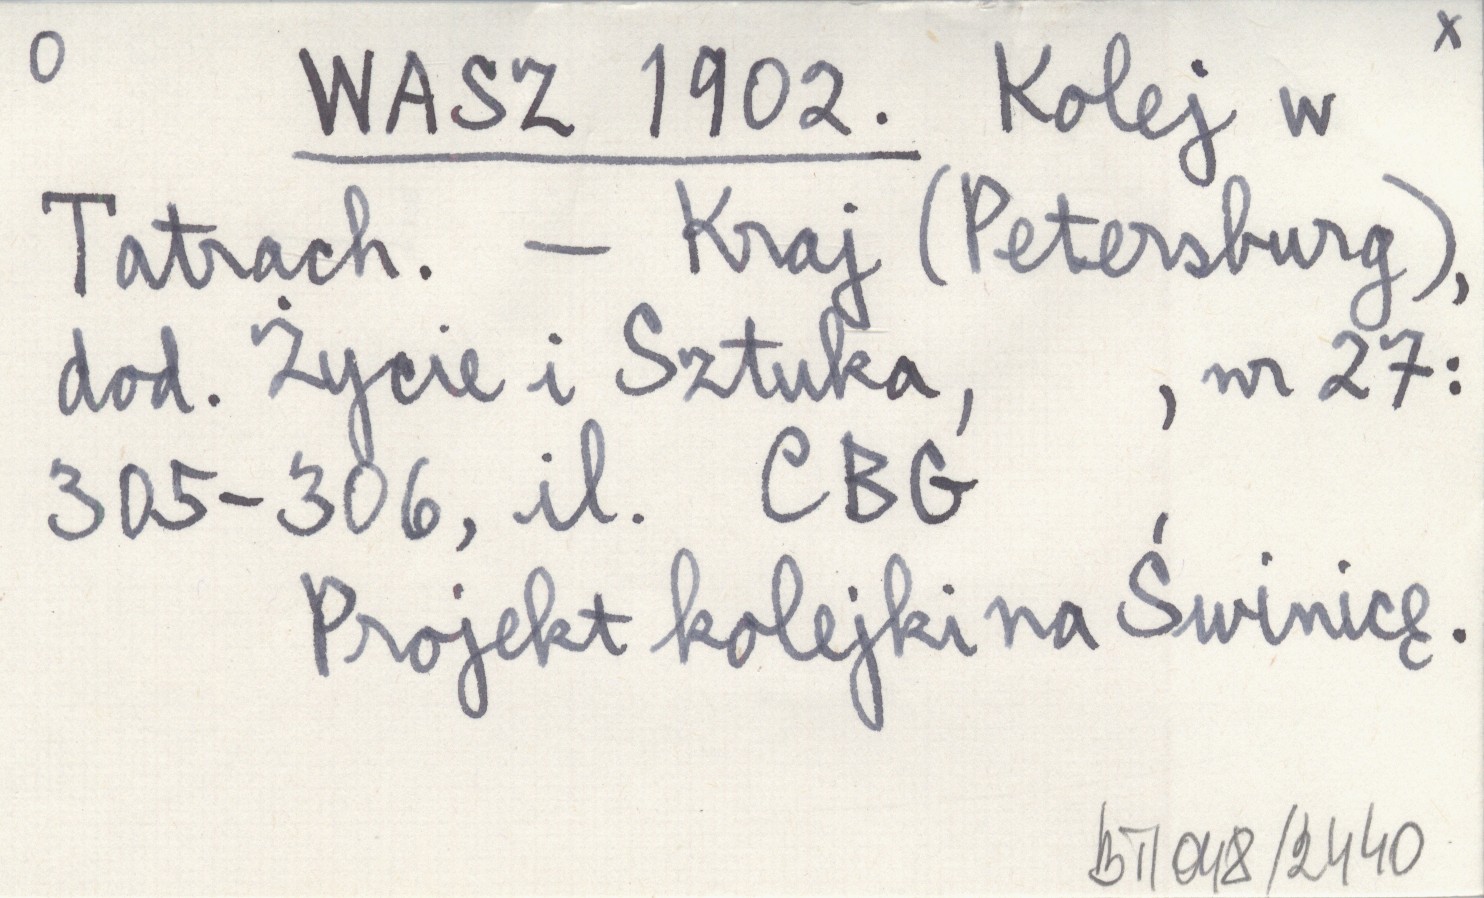 O WASZ 1902. Kolej w x
Tatrach. — Kraj (Petersburg),
dod. Życie i Sztuka, , nr 27:
305-306, il. CBG
Projekt kolejki na Świnicę.
048/2440